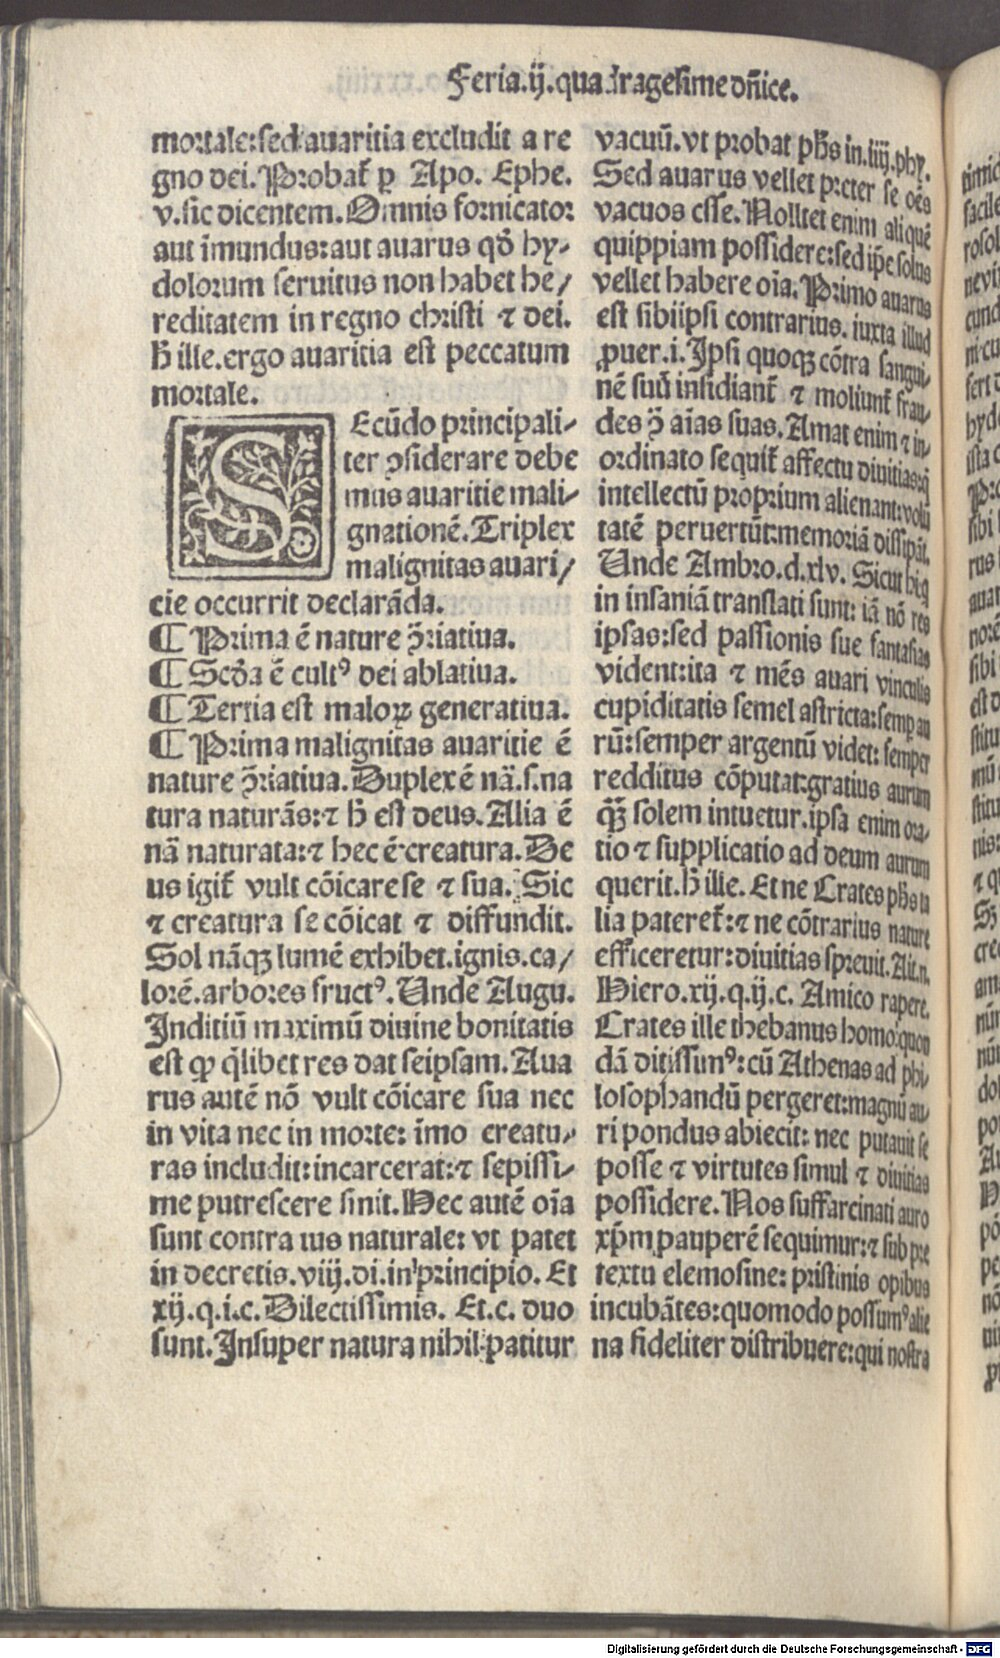 Feria.ij.quadragesime dn̄ice.
mortale:sed auaritia excludit a re
gno dei. Probat̄ ꝑ Apo. Ephe.
v.sic dicentem. Omnis fornicator
aut īmundus:aut auarus qd̄ hy-
dolorum seruitus non habet he/
reditatem in regno christi ⁊ dei.
h̄ ille.ergo auaritia est peccatum
mortale.
SEcūdo principali-
ter ꝯsiderare debe
mus auaritie mali-
gnationē. Triplex
malignitas auari/
cie occurrit declarāda.
¶ Prima ē nature ꝓ̄riatiua.
¶ Scd̄a ē cultꝰ dei ablatiua.
¶ Tertia est maloꝝ generatiua.
¶ Prima malignitas auaritie ē
nature ꝓ̄riatiua. Duplex ē nā.s.na
tura naturās:⁊ h̄ est deus. Alia ē
nā naturata:⁊ hec ē creatura. De
us igit̄ vult cōicare se ⁊ sua. Sic
⁊ creatura se cōicat ⁊ diffundit.
Sol nāqꝫ lumē exhibet.ignis.ca/
lorē.arbores fructꝰ. Unde Augu.
Inditiū maximū diuine bonitatis
est ꝙ q̄libet res dat seipsam. Aua
rus autē nō vult cōicare sua nec
in vita nec in morte: īmo creatu-
ras includit:incarcerat:⁊ sepissi-
me putrescere sinit. Hec autē oīa
sunt contra ius naturale: vt patet
in decretis.viij.di.in principio. Et
xij.q.i.c. Dilectissimis. Et.c. duo
sunt. Insuper natura nihil patitur
vacuū.vt probat ph̄s in.iiij.phy.
Sed auarus vellet preter se oēs
vacuos esse. Nollet enim aliquē
quippiam possidere:sed ip̄e solus
vellet habere oīa. Primo auarus
est sibiipsi contrarius. iuxta illud
ꝓuer.i. Ipsi quoqꝫ cōtra sangui-
nē suū insidiant̄ ⁊ moliunt̄ frau-
des ꝯ̄ aīas suas. Amat enim ⁊ in-
ordinato sequit̄ affectu diuitias:q̄
intellectū proprium alienant:volū
tatē peruertūt:memoriā dissipāt.
Unde Ambro.d.xlv. Sicut hi q̄
in insaniā translati sunt: iā nō res
ipsas:sed passionis sue fantasias
vident:ita ⁊ mēs auari vinculis
cupiditatis semel astricta:semp au
rū:semper argentū videt: semper
redditus cōputat:gratius aurum
qꝫ̄ solem intuetur.ipsa enim ora-
tio ⁊ supplicatio ad deum aurum
querit. h̄ ille. Et ne Crates ph̄s ta
lia pateret̄:⁊ ne cōtrarius nature
efficeretur:diuitias spreuit. Ait.n.
Hiero.xij.q.ij.c. Amico rapere.
Crates ille thebanus homo quon
dā ditissimꝰ:cū Athenas ad phi-
losophandū pergeret:magnū au-
ri pondus abiecit: nec putauit se
posse ⁊ virtutes simul ⁊ diuitias
possidere. Nos suffarcinati auro
xp̄m pauperē sequimur:⁊ sub pre
textu elemosine: pristinis opibus
incubātes:quomodo possumꝰ alie
na fideliter distribuere:qui nostra
Digitalisierung gefördert durch die Deutsche Forschungsgemeinschaft - DFG